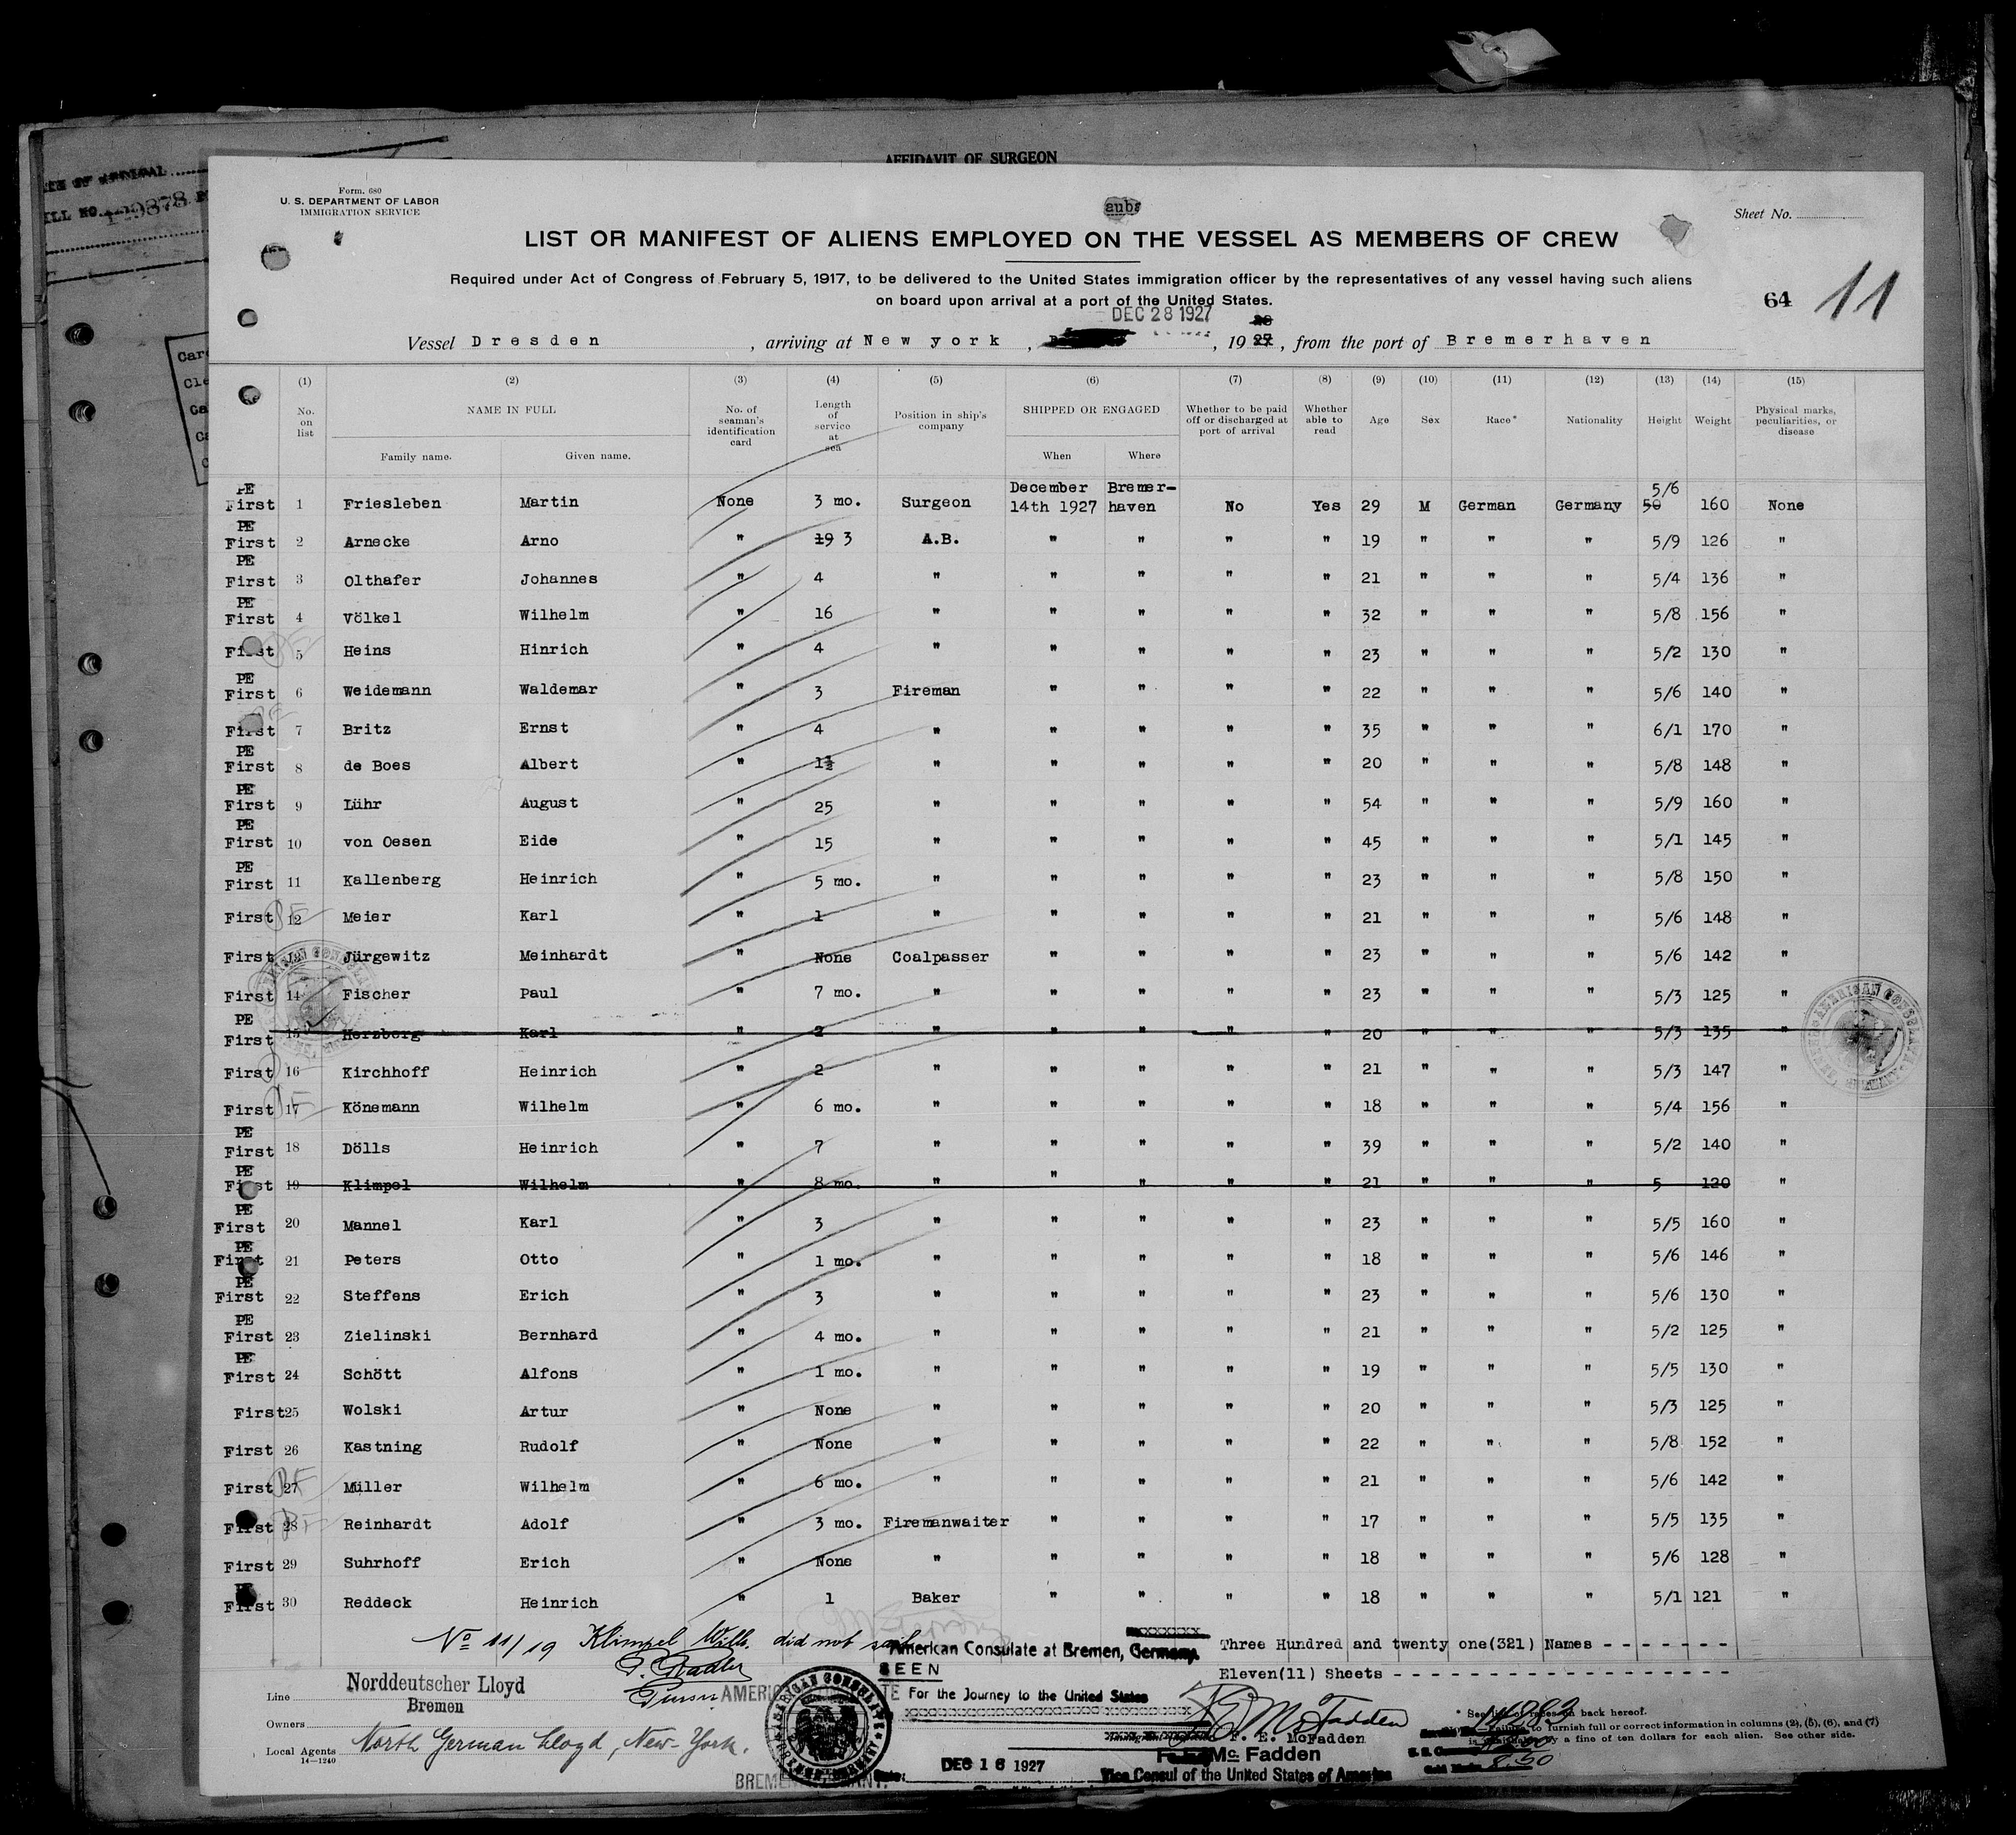 AFFIDAVIT OF SURGEON
Form. 680
U. S. DEPARTMENT OF LABOR
IMMIGRATION SERVICE
Sheet No.
LIST OR MANIFEST OF ALIENS EMPLOYED ON THE VESSEL AS MEMBERS OF CREW
Required under Act of Congress of February 5, 1917, to be delivered to the United States immigration officer by the representatives of any vessel having such aliens
on board upon arrival at a port of the United States.
64 11
DEC 28 1927
Vessel Dresden, arriving at New york, , 19 27, from the port of Bremerhaven
(1) (2) (3) (4) (5) (6) (7) (8) (9) (10) (11) (12) (13) (14) (15)
No. on list NAME IN FULL Family name. Given name. No. of seaman's identification card Length of service at sea Position in ship's company SHIPPED OR ENGAGED When Where Whether to be paid off or discharged at port of arrival Whether able to read Age Sex Race* Nationality Height Weight Physical marks, peculiarities, or disease
PE First 1 Friesleben Martin None 3 mo. Surgeon December 14th 1927 Bremer-haven No Yes 29 M German Germany 5/6 50 160 None
PE First 2 Arnecke Arno " 19 3 A.B. " " " " 19 " " " 5/9 126 "
PE First 3 Olthafer Johannes " 4 " " " " " 21 " " " 5/4 136 "
PE First 4 Völkel Wilhelm " 16 " " " " " 32 " " " 5/8 156 "
First 5 Heins Hinrich " 4 " " " " " 23 " " " 5/2 130 "
PE First 6 Weidemann Waldemar " 3 Fireman " " " " 22 " " " 5/6 140 "
First 7 Britz Ernst " 4 " " " " " 35 " " " 6/1 170 "
PE First 8 de Boes Albert " 1½ " " " " " 20 " " " 5/8 148 "
PE First 9 Lühr August " 25 " " " " " 54 " " " 5/9 160 "
PE First 10 von Oesen Eide " 15 " " " " " 45 " " " 5/1 145 "
PE First 11 Kallenberg Heinrich " 5 mo. " " " " " 23 " " " 5/8 150 "
First PE 12 Meier Karl " 1 " " " " " 21 " " " 5/6 148 "
First 13 Jürgewitz Meinhardt " None Coalpasser " " " " 23 " " " 5/6 142 "
First 14 Fischer Paul " 7 mo. " " " " " 23 " " " 5/3 125 "
PE First 15 Herzberg Karl " 2 " " " " " 20 " " " 5/3 135 "
First 16 Kirchhoff Heinrich " 2 " " " " " 21 " " " 5/3 147 "
First PE 17 Könemann Wilhelm " 6 mo. " " " " " 18 " " " 5/4 156 "
PE First 18 Dölls Heinrich " 7 " " " " " 39 " " " 5/2 140 "
PE First 19 Klimpel Wilhelm " 8 mo. " " " " " 21 " " " 5 120 "
PE First 20 Mannel Karl " 3 " " " " " 23 " " " 5/5 160 "
PE First 21 Peters Otto " 1 mo. " " " " " 18 " " " 5/6 146 "
PE First 22 Steffens Erich " 3 " " " " " 23 " " " 5/6 130 "
PE First 23 Zielinski Bernhard " 4 mo. " " " " " 21 " " " 5/2 125 "
PE First 24 Schött Alfons " 1 mo. " " " " " 19 " " " 5/5 130 "
First 25 Wolski Artur " None " " " " " 20 " " " 5/3 125 "
First 26 Kastning Rudolf " None " " " " " 22 " " " 5/8 152 "
First PE 27 Müller Wilhelm " 6 mo. " " " " " 21 " " " 5/6 142 "
First PE 28 Reinhardt Adolf " 3 mo. Firemanwaiter " " " " 17 " " " 5/5 135 "
First 29 Suhrhoff Erich " None " " " " " 18 " " " 5/6 128 "
PE First 30 Reddeck Heinrich " 1 Baker " " " " 18 " " " 5/1 121 "
No 11/19 Klimpel Wilh. did not sail
American Consulate at Bremen, Germany.
SEEN
For the Journey to the United States
DEC 16 1927
Three Hundred and twenty one(321) Names - - - - - - -
Eleven(11) Sheets - - - - - - - - - - - - - - - - - -
F. E. McFadden
Mc Fadden
Vice Consul of the United States of America
Line Norddeutscher Lloyd
Bremen
Owners
Local Agents North German Lloyd, New-York.
14—1240
* See list of races on back hereof.
failure to furnish full or correct information in columns (2), (5), (6), and (7)
is punishable by a fine of ten dollars for each alien. See other side.